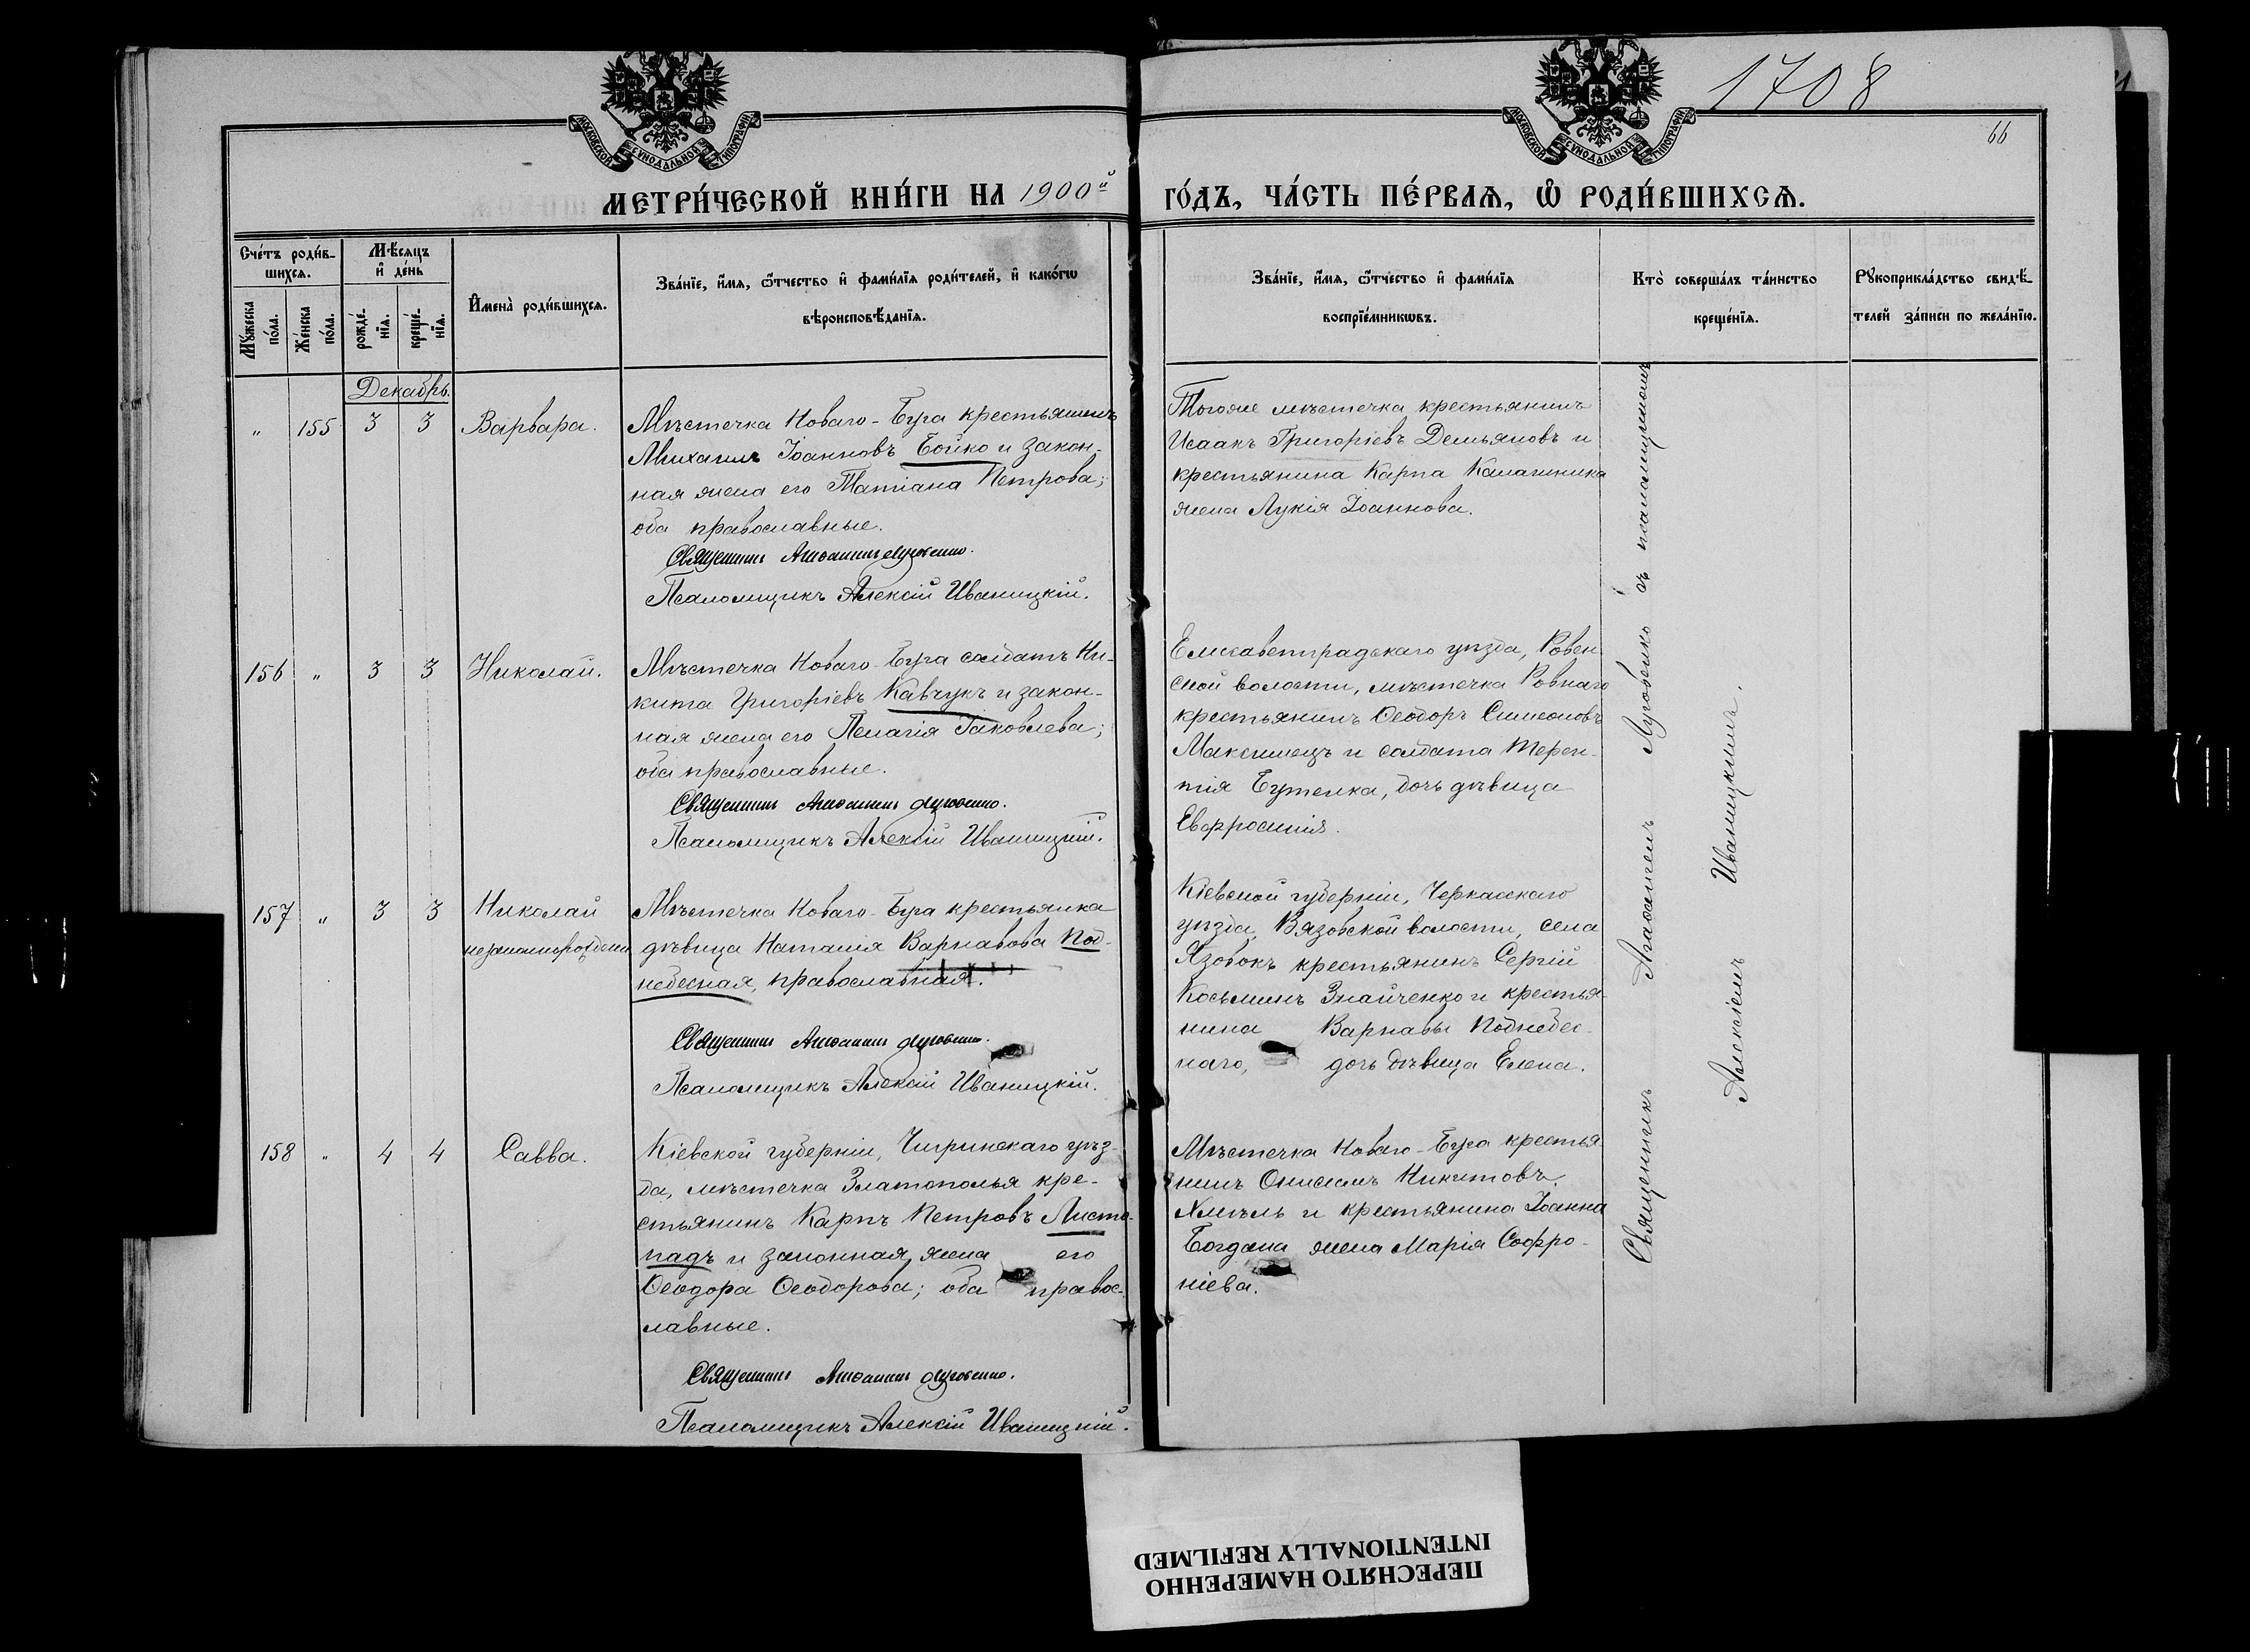 1708
66
МОСКОВСКОЙ СѴНОДАЛЬНОЙ ТИПОГРАФІИ
МОСКОВСКОЙ СѴНОДАЛЬНОЙ ТИПОГРАФІИ
МЕТРИ́ЧЕСКОЙ КНИ́ГИ НА 1900й
ГО́ДЪ, ЧА́СТЬ ПЕ́РВАѦ, Ѡ҆ РОДИ́ВШИХСѦ.
Сче́тъ роди́в-
шихсѧ.
Мꙋ́жеска
по́ла.
Же́нска
по́ла.
Мѣ́сѧцъ
и҆ де́нь
рожде́-
нїѧ.
креще́-
нїѧ.
И҆мена̀ роди́вшихсѧ.
Зва́нїе, и҆́мѧ, ѻ҆́тчество и҆ фами́лїѧ роди́телей, и҆ како́гѡ
вѣроисповѣ́данїѧ.
Зва́нїе, и҆́мѧ, ѻ҆́тчество и҆ фами́лїѧ
воспрїе́мникѡвъ.
Кто̀ соверша́лъ та́инство
креще́нїѧ.
Рꙋкоприкла́дство свидѣ́-
телей за́писи по жела́нїю.
Декабрь.
„ 155 3 3 Варвара.
Мѣстечка Новаго-Буга крестьянинъ
Михаилъ Іоанновъ Бойко и закон-
ная жена его Татіана Петрова;
оба православные.
Священникъ Агаѳангелъ Луговенко.
Псаломщикъ Алексій Иваницкій.
Тогоже мѣстечка крестьянинъ
Исаакъ Григоріевъ Демьяновъ и
крестьянина Карпа Калашника
жена Лукія Іоаннова.
156 „ 3 3 Николай.
Мѣстечка Новаго-Буга солдатъ Ни-
кита Григоріевъ Кавчукъ и закон-
ная жена его Пелагія Іаковлева;
оба православные.
Священникъ Агаѳангелъ Луговенко.
Псаломщикъ Алексій Иваницкій.
Елисаветградскаго уѣзда, Ровен-
ской волости, мѣстечка Ровнаго
крестьянинъ Ѳеодоръ Симеоновъ
Максимецъ и солдата Терен-
тія Бутенка, дочь дѣвица
Евфросинія.
157 „ 3 3 Николай
незаконнорожден.
Мѣстечка Новаго-Буга крестьянка
дѣвица Наталія Варнавова Под-
небесная, православная.
Священникъ Агаѳангелъ Луговенко.
Псаломщикъ Алексій Иваницкій.
Кіевской губерніи, Черкасскаго
уѣзда, Вязовской волости, села
Язвокъ крестьянинъ Сергій
Косьминъ Знайченко и крестья-
нина Варнавы Поднебес-
наго, дочь дѣвица Елена.
158 „ 4 4 Савва.
Кіевской губерніи, Чигринскаго уѣз-
да, мѣстечка Златополья кре-
стьянинъ Карпъ Петровъ Листо-
падъ и законная жена его
Ѳеодора Ѳеодорова; оба правос-
лавные.
Священникъ Агаѳангелъ Луговенко.
Псаломщикъ Алексій Иваницкій.
Мѣстечка Новаго-Буга крестья-
нинъ Онисимъ Никитовъ
Хмель и крестьянина Іоанна
Богдана жена Марія Софро-
ніева.
Священникъ Агаѳангелъ Луговенко съ псаломщикомъ
Алексіемъ Иваницкимъ.
ПЕРЕСНЯТО НАМЕРЕННО
INTENTIONALLY REFILMED